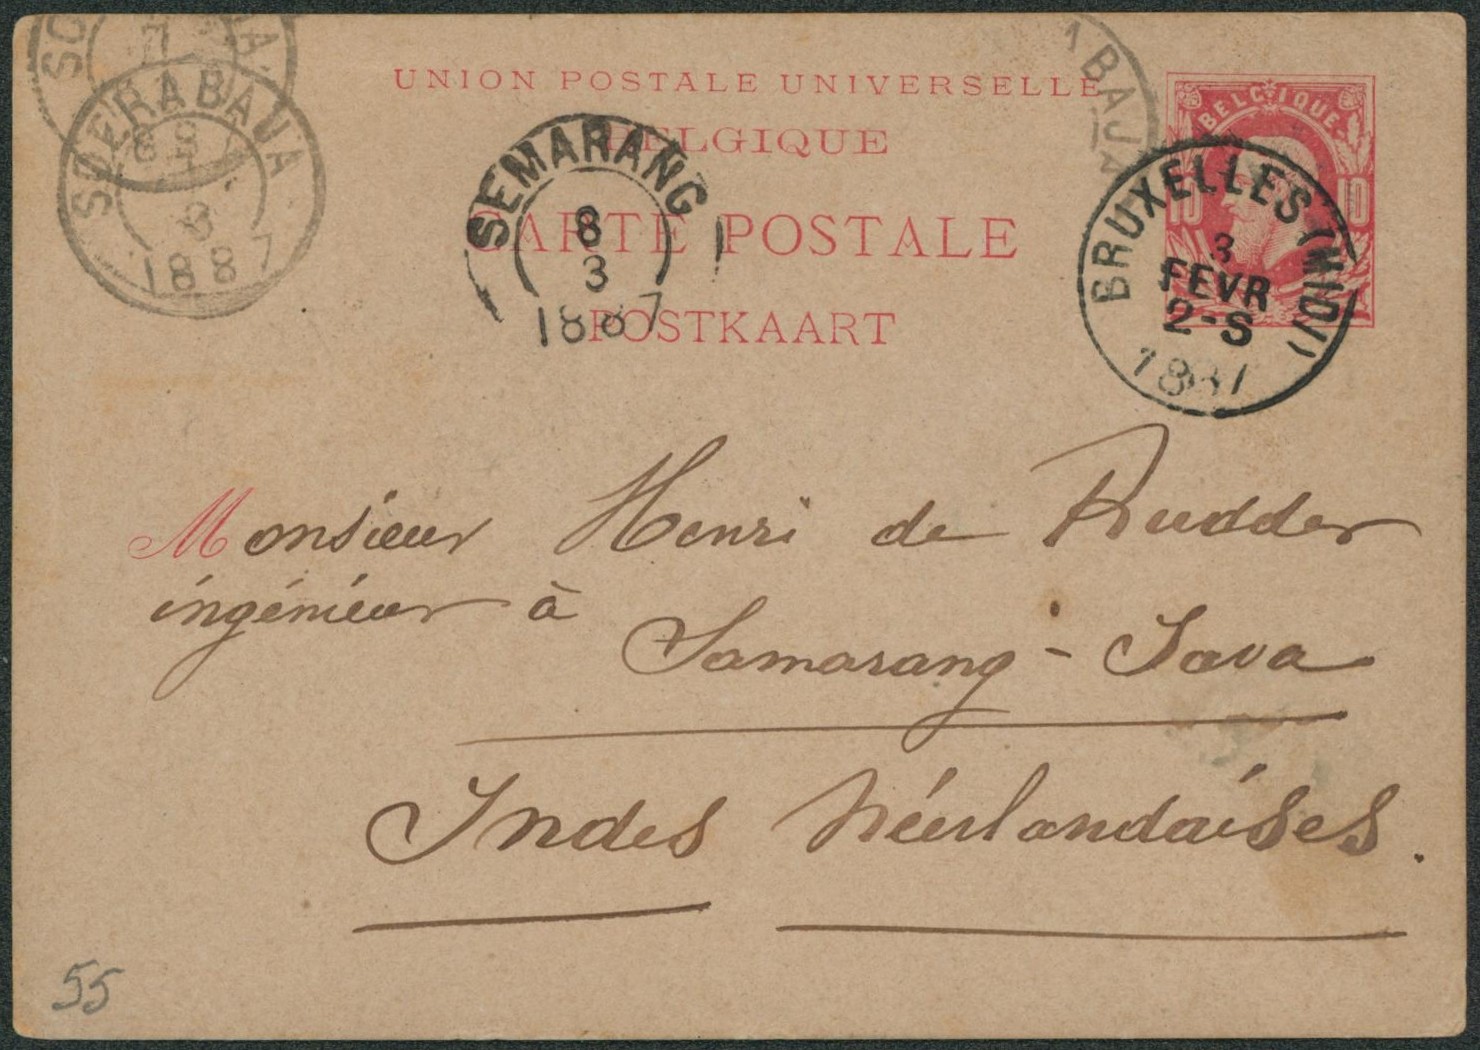 UNION POSTALE UNIVERSELLE
BELGIQUE
CARTE POSTALE
POSTKAART
BELGIQUE
10 10
BRUXELLES (MIDI)
3
FEVR
2-S
1887
SEMARANG
8
3
1887
SOERABAYA
3
1887
ABAJA
Monsieur Henri de Rudder
ingénieur à
Samarang - Java
Indes Néerlandaises.
55